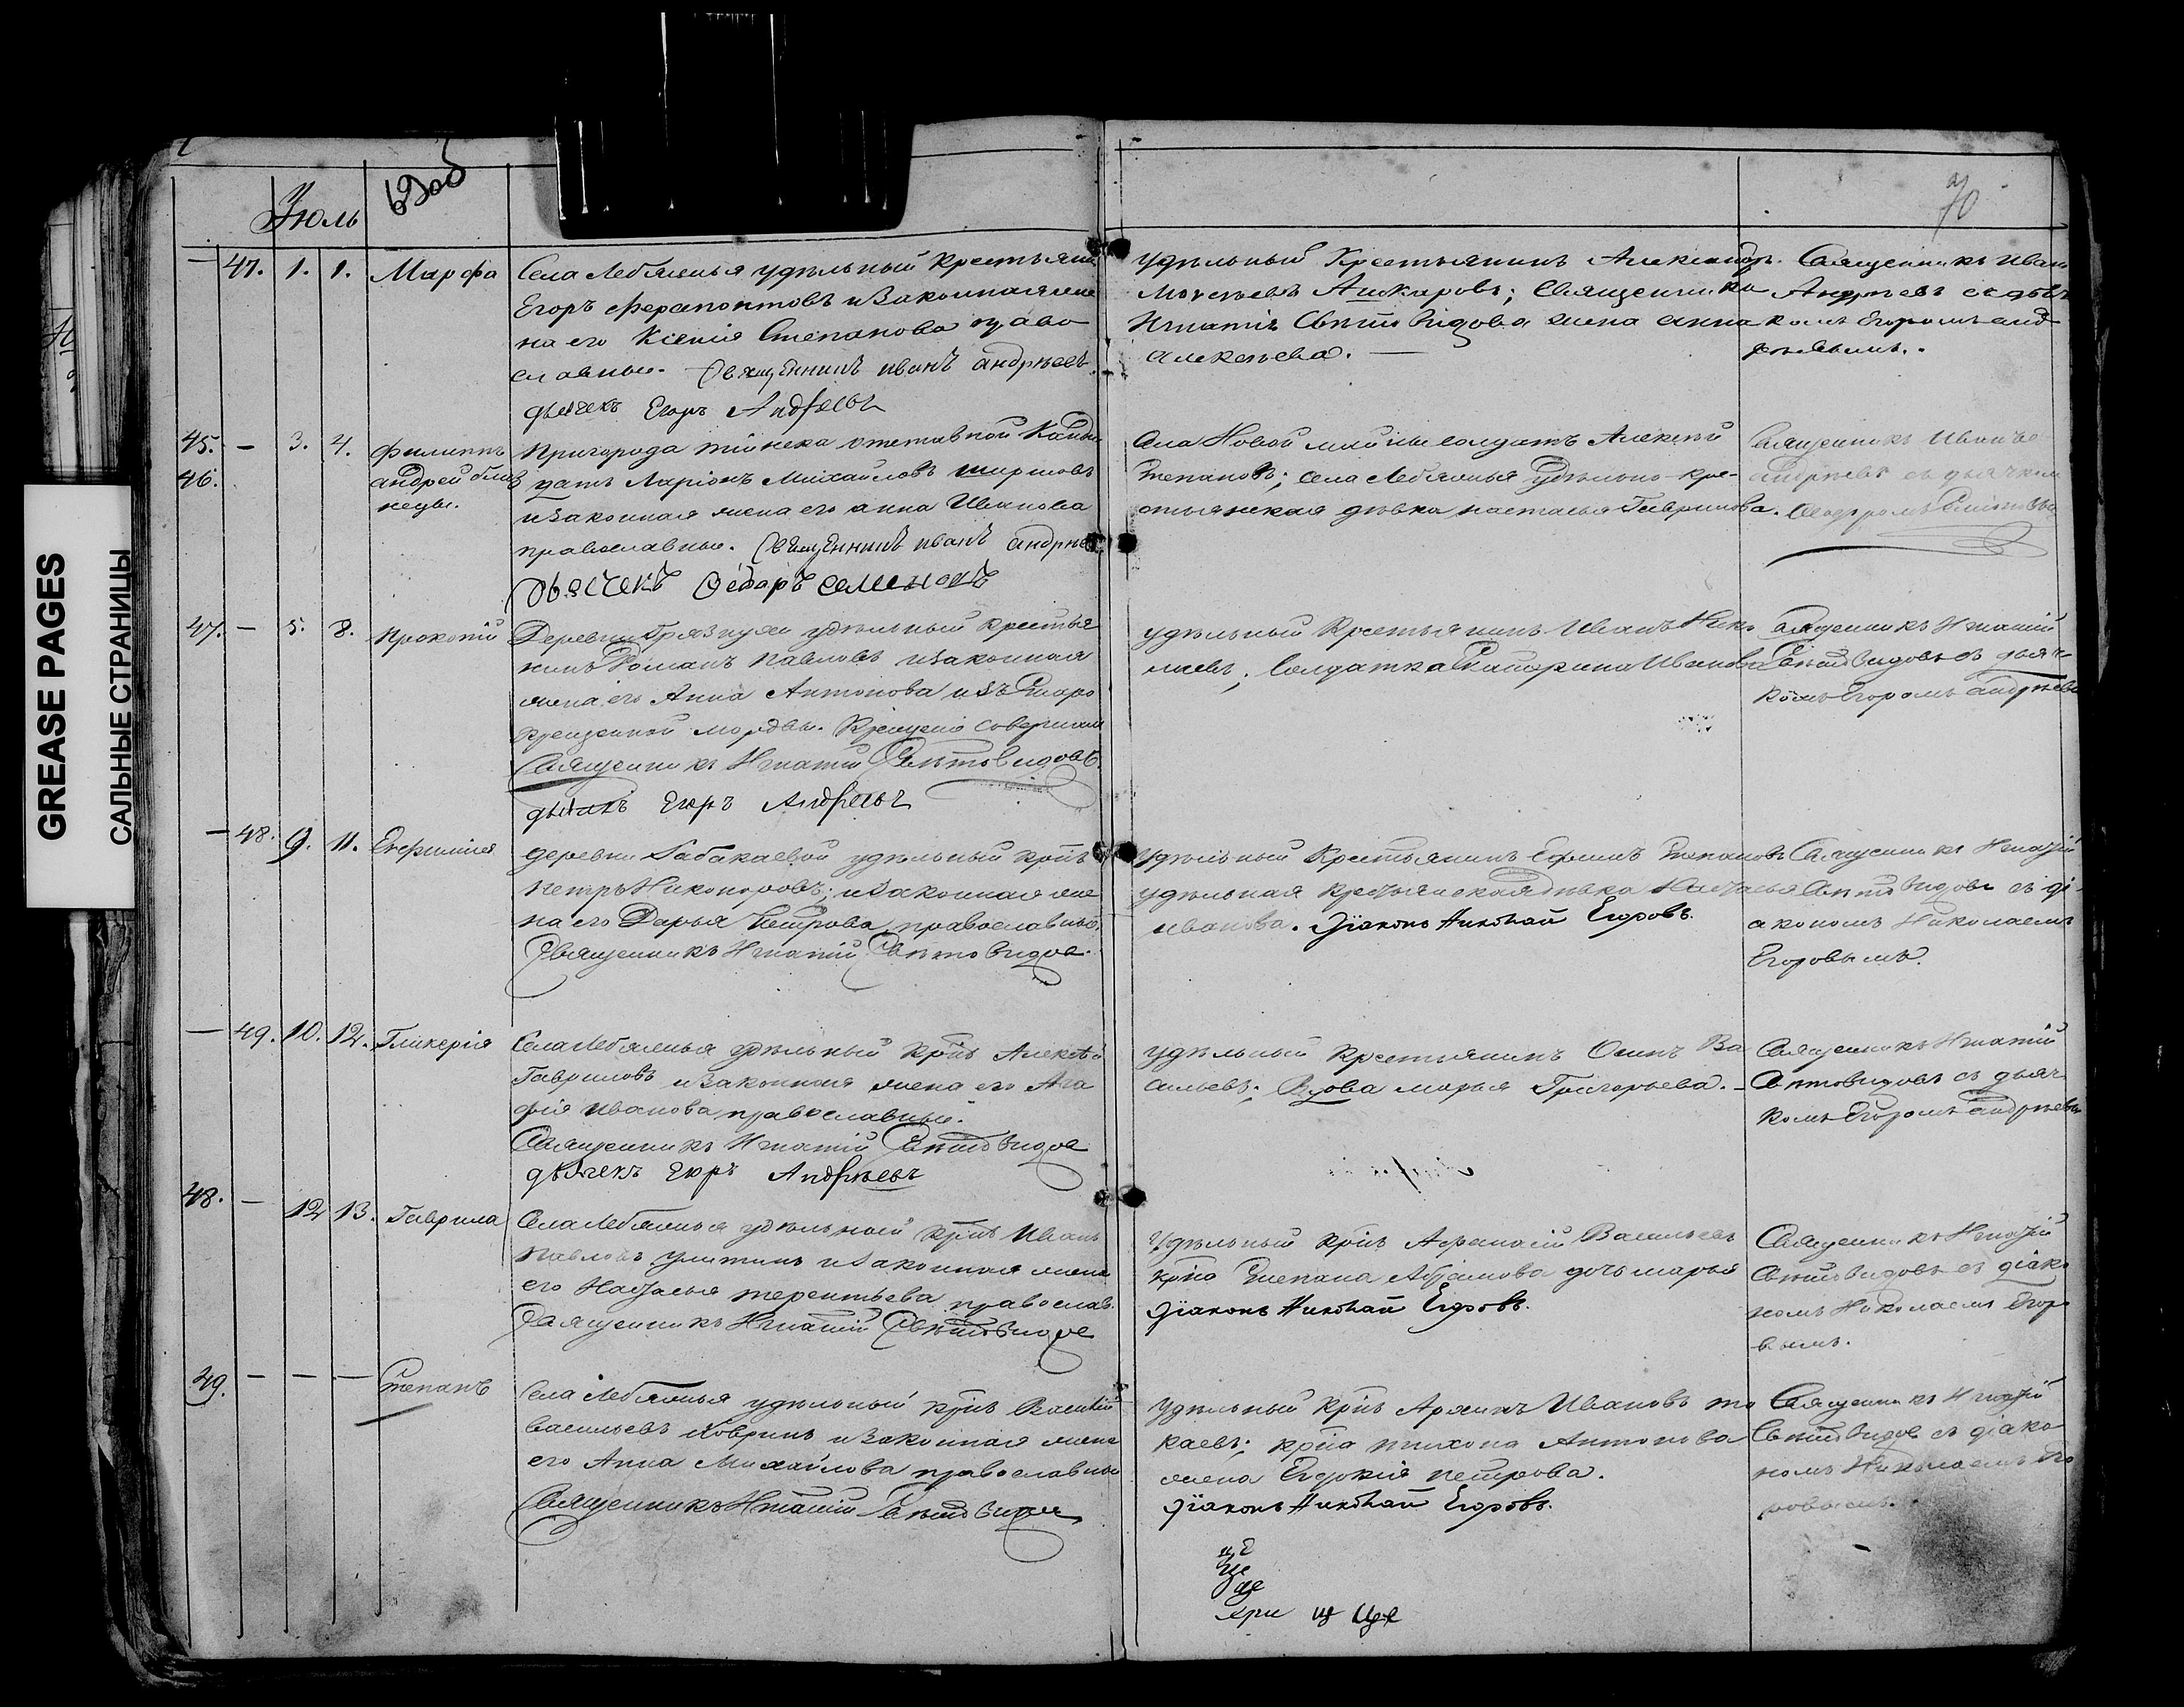 GREASE PAGES
САЛЬНЫЕ СТРАНИЦЫ
Июль
69об
70
47. 1. 1. Марфа
Села Лебяжья удѣльный крестьяни
Егоръ Ферапонтовъ и законная же
на его Ксенія Степанова право
славные. Священникъ иванъ андрѣевъ
дьячекъ Егоръ Андреевъ
удѣльный Крестьянинъ Александръ
Моѵсеевъ Ашкаровъ; Священника
Игнатія Свѣтовидова жена анна
алексеева.
Священникъ Иванъ
Андреевъ съ дьяч
комъ Егоромъ анд
реевымъ.
45. — 3. 4. Филиппъ
46. андрей близ
нецы.
Пригорода тіинска отставной
датъ Ларіонъ Михайловъ ширшовъ
и законная жена его анна Иванова
православные. Священникъ иванъ андрѣевъ
дьячекъ Ѳедоръ семеновъ
Села Новой майны солдатъ Алексей
Степановъ; села Лебяжья Удѣльно-кре-
стьянская дѣвка настасья Гаврилова.
Священникъ Иванъ
андреевъ съ дьячком
47. — 5. 8. Прокопій
Деревни Грязнухи удѣльный крестья
нинъ Романъ Павловъ и законная
жена его Анна Антонова изъ Старо
крещенной мордвы. Крещеніе совершали
Священникъ Игнатій Свѣтовидовъ.
дьячекъ Егоръ Андреевъ
удѣльный Крестьянинъ Иванъ Нико
лаевъ; Солдатка Катарина Иванова
Священникъ Игнатій
Свѣтовидовъ съ дьяч-
комъ Егоромъ андреевы
— 48. 9. 11. Евфимія
деревни Габакаевой удѣльный крнъ
Петръ Никоноровъ; и законная же
на его Дарья Петрова православные.
Священникъ Игнатій Свѣтовидов.
удѣльный Крестьянинъ Ефимъ Степановъ
удѣльная крестьянская дѣвка Настасья
иванова. Діаконъ Николай Егоровъ.
Священникъ Игнатій
Свѣтовидовъ съ ді-
акономъ Николаемъ
Егоровымъ.
— 49. 10. 12. Гликерія
Села Лебяжья удѣльный крнъ Алексѣй
Гавриловъ и законная жена его Ага
фія Иванова православные.
Священникъ Игнатій Свѣтовидов
дьячекъ Егоръ Андреевъ
удѣльный крестьянинъ Осипъ Ва
сильевъ; Вдова марья Григорьева.
Священникъ Игнатій
Свѣтовидовъ съ дьяч
комъ Егоромъ андреевы
48. — 12 13. Гаврила
Села Лебяжья удѣльной крнъ Иванъ
Павловъ улитинъ и законная жена
его Настасья терентьева православ.
Священникъ Игнатій Свѣтовидов
Удѣльный крнъ Афанасій Васильевъ
крна Степана Абрамова дочь марья
Діаконъ Николай Егоровъ.
Священникъ Игнатій
Свѣтовидовъ съ діако
номъ Николаемъ Егоро
вымъ.
49. — — — Степанъ
Села Лебяжья удѣльный крнъ Василій
васильевъ ковринъ и законная жена
его Анна Михайлова православные
Священникъ Игнатій Свѣтовидов
удѣльный крнъ Иванов то
каевъ; крна тихона Антонова
жена Евдокія петрова.
Діаконъ Николай Егоровъ.
Священникъ Игнатій
Свѣтовидов съ діако
номъ Николаемъ Его
ровымъ.